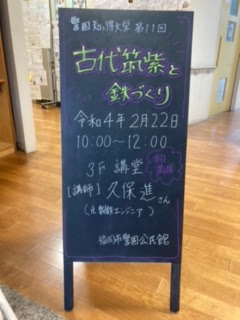 警固知っ得大学 第11回
古代筑紫と
鉄づくり
令和4年2月22日
10:00〜12:00
3F 講堂
【講師】久保 進さん
(元 製鉄エンジニア)
福岡市警固公民館